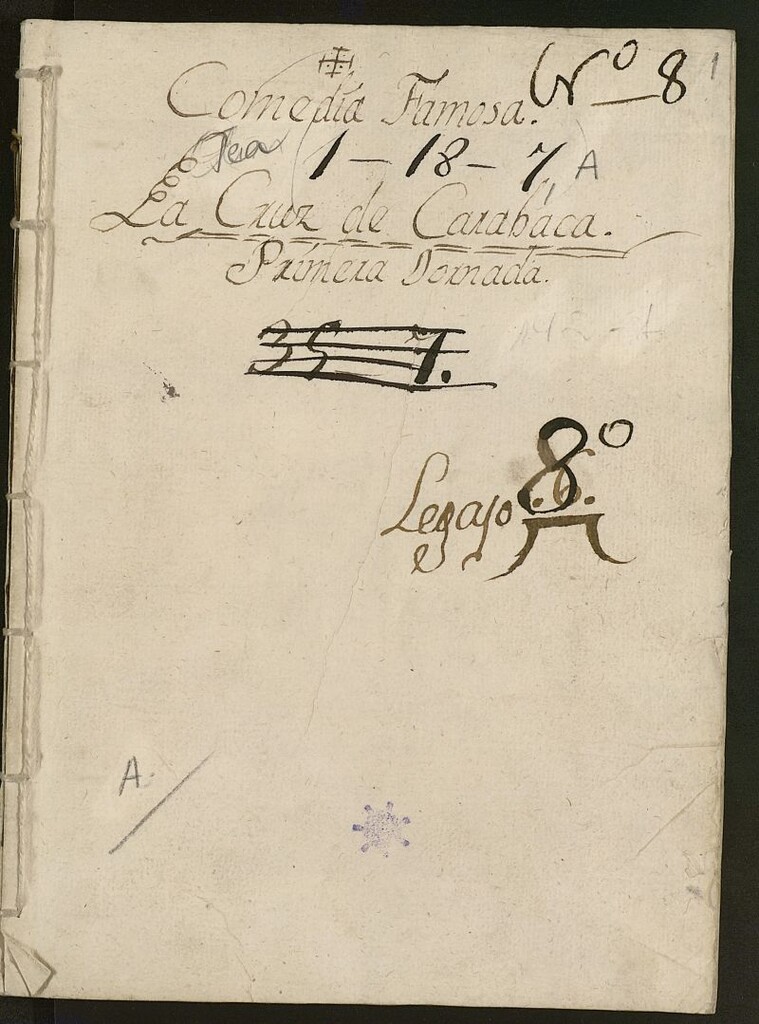 Comedia Famosa. Nº 8 1
Tea 1-18-7, A
La Cruz de Carabaca.
Primera Jornada.
35 7.
Legajo 8º
A.